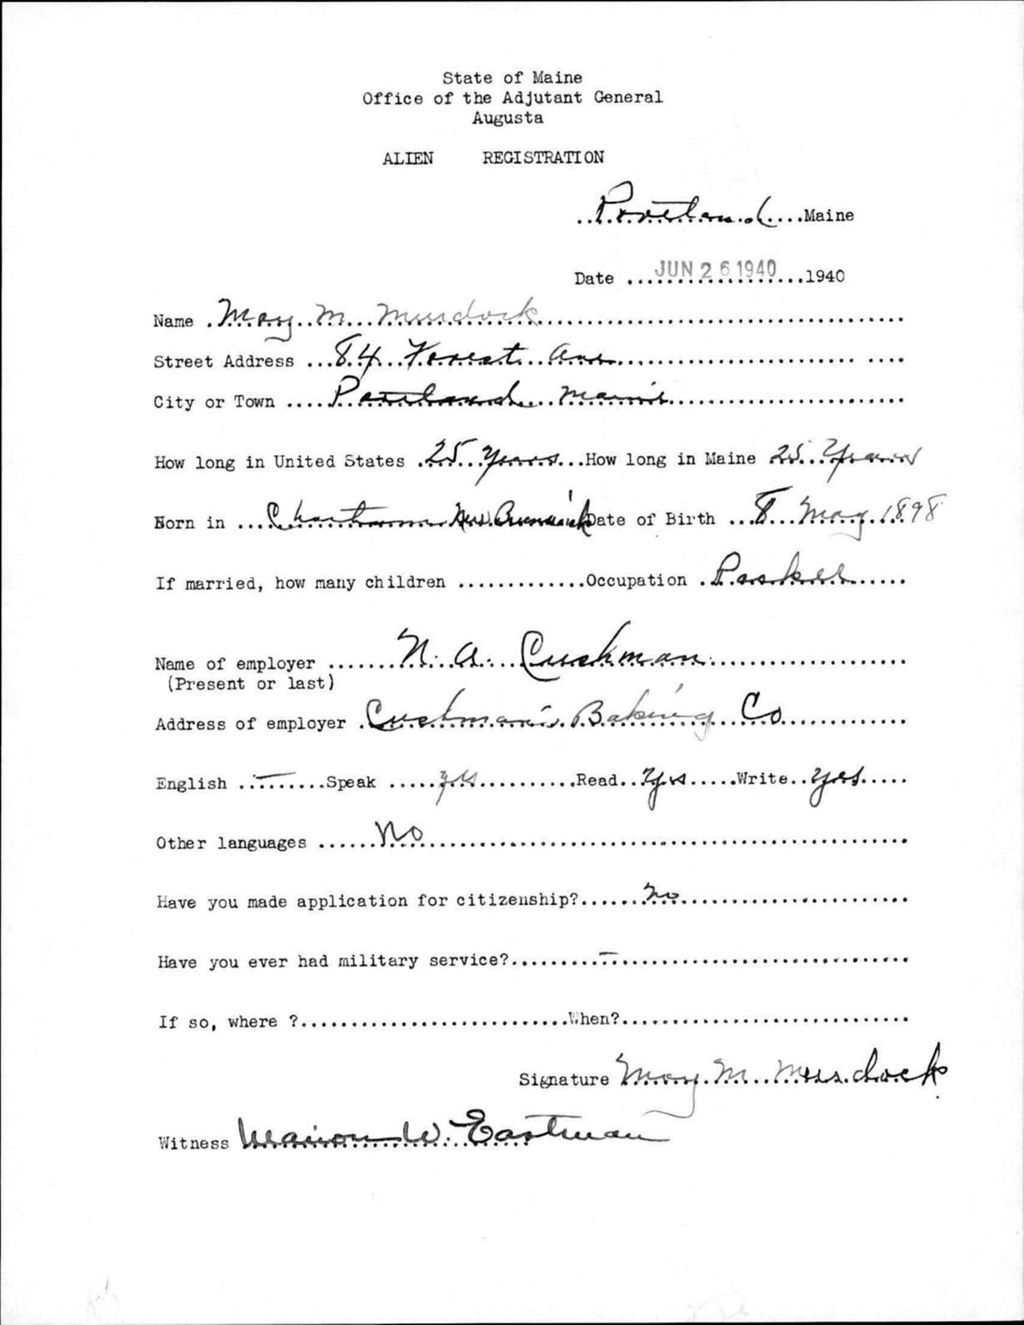 State of Maine
Office of the Adjutant General
Augusta
ALIEN REGISTRATION
Portland Maine
Date JUN 26 1940 1940
Name May M. Murdock
Street Address 84 Forest Ave
City or Town Portland Maine
How long in United States 25 Years How long in Maine 25 Years
Born in Chatham New Brunswick Date of Birth 8 May 1898
If married, how many children Occupation Packer
Name of employer N. A. Cushman
(Present or last)
Address of employer Cushman's Baking Co
English — Speak yes Read Yes Write yes
Other languages No
Have you made application for citizenship? No
Have you ever had military service? —
If so, where ? When?
Signature May M. Murdock
Witness Marion W. Eastman